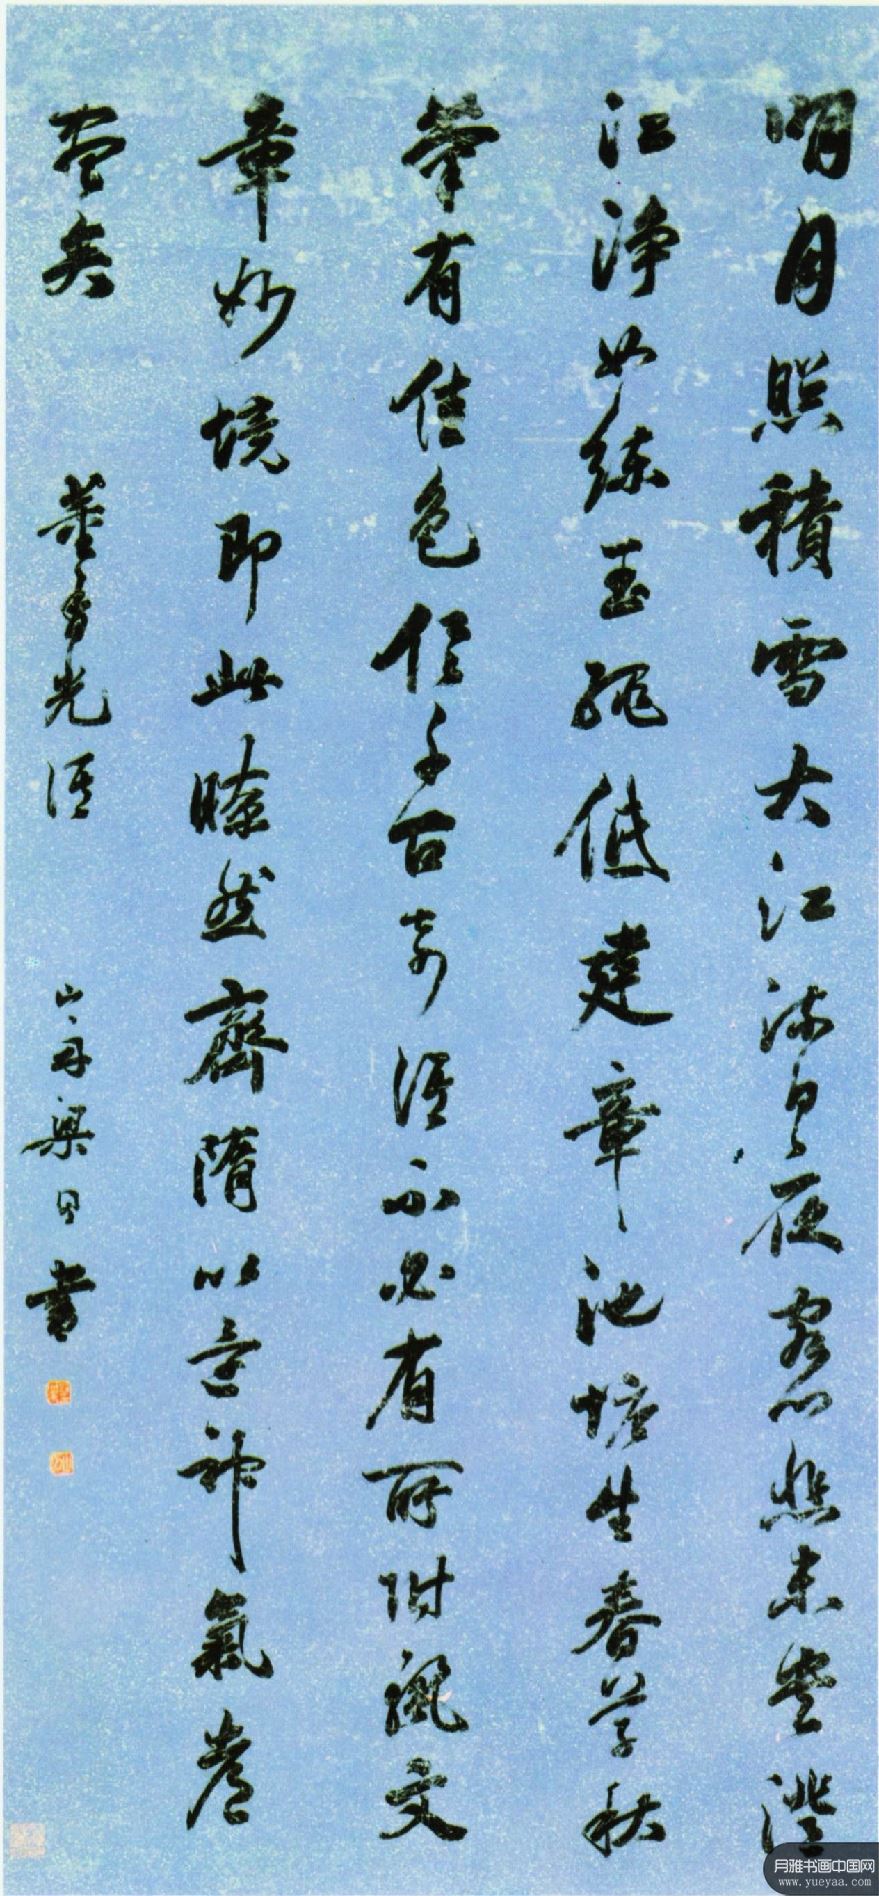 明月照積雪大江流日夜客心悲未央澄
江淨如練玉繩低建章池塘生春草秋
菊有佳色俱千古奇語不必有所附麗文
章妙境即此瞭然齊隋以還神氣都
盡矣 董香光語 山舟梁同書
月雅书画中国网
www.yueyaa.com